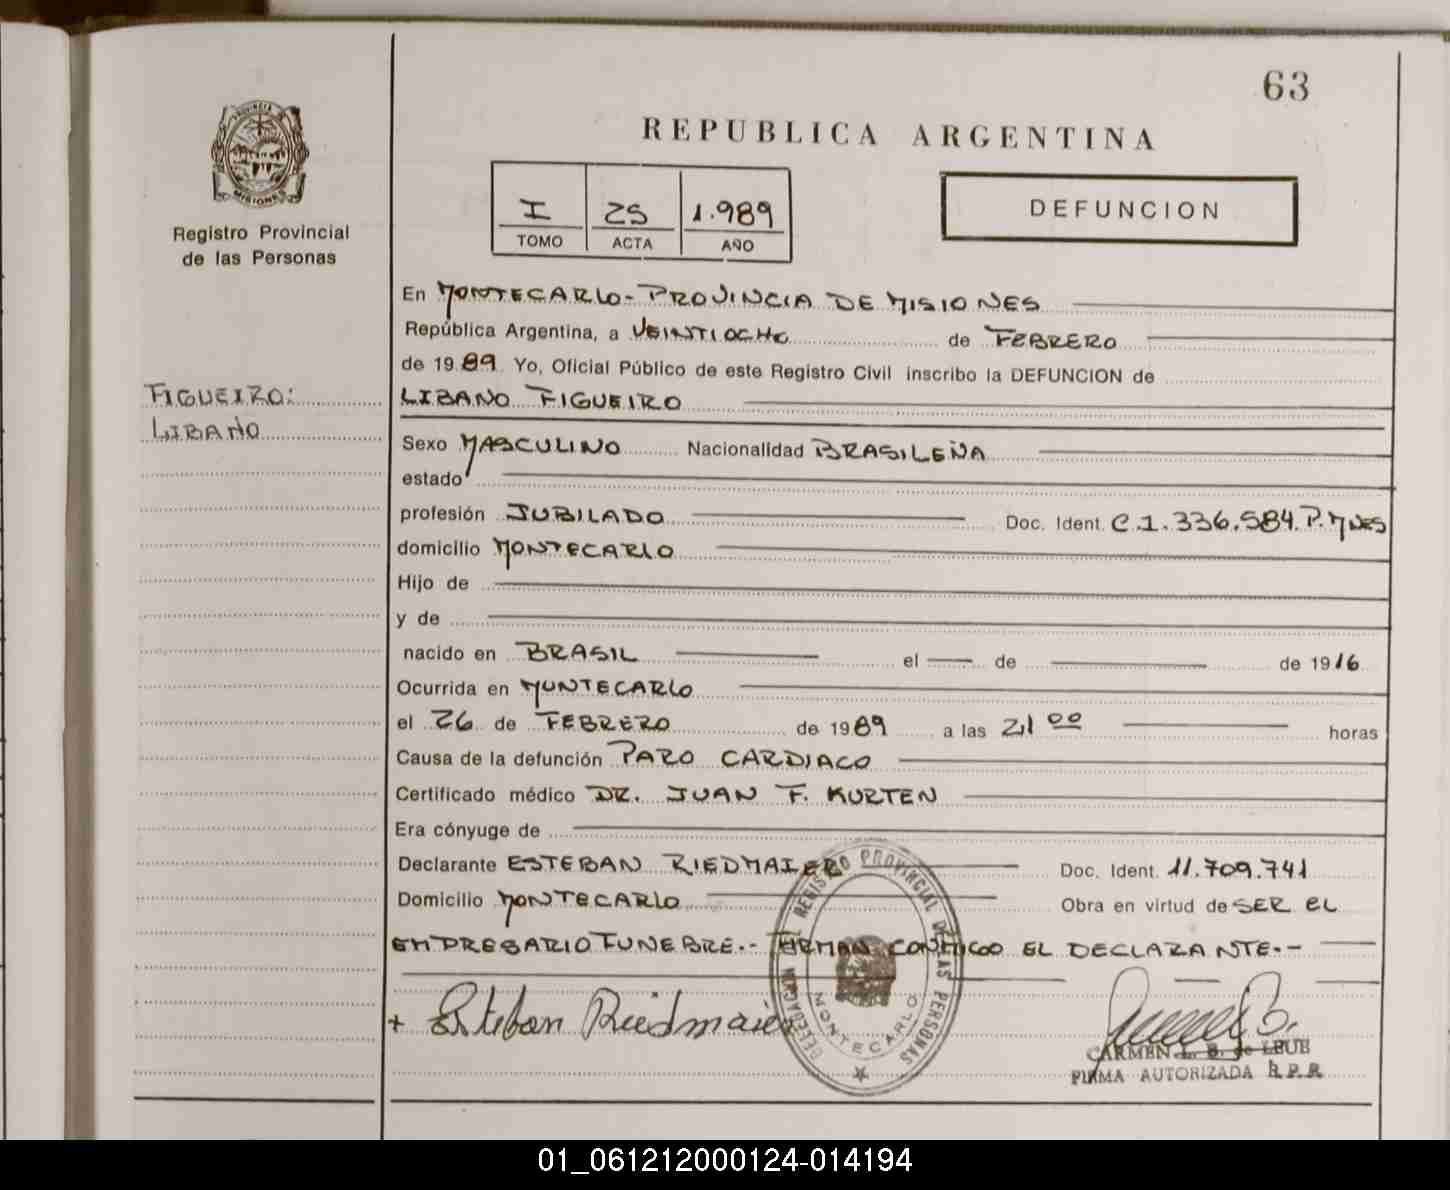 63
REPUBLICA ARGENTINA
PROVINCIA DE
MISIONES
Registro Provincial
de las Personas
I 25 1.989
TOMO ACTA AÑO
DEFUNCION
FIGUEIRO:
LIBANO
En MONTECARLO-PROVINCIA DE MISIONES
República Argentina, a VEINTIOCHO de FEBRERO
de 1989 Yo, Oficial Público de este Registro Civil inscribo la DEFUNCION de
LIBANO FIGUEIRO
Sexo MASCULINO Nacionalidad BRASILEÑA
estado
profesión JUBILADO Doc. Ident. C.1.336.584.P.MNES
domicilio MONTECARLO
Hijo de
y de
nacido en BRASIL el — de — de 1916
Ocurrida en MONTECARLO
el 26 de FEBRERO de 1989 a las 21 00 horas
Causa de la defunción PARO CARDIACO
Certificado médico DR. JUAN F. KURTEN
Era cónyuge de
Declarante ESTEBAN RIEDMAIER Doc. Ident. 11.709.741
Domicilio MONTECARLO Obra en virtud de SER EL
EMPRESARIO FUNEBRE.- FIRMAN CONMIGO EL DECLARANTE.-
+ Esteban Riedmaier
DELEGACION REGISTRO PROVINCIAL DE LAS PERSONAS
MONTECARLO
CARMEN L. B. de LEUE
FIRMA AUTORIZADA R.P.P.
01_061212000124-014194